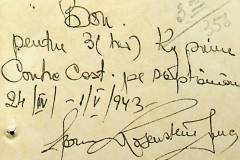 Bon
pentru 3 (trei) Kg pâine
Contra Cost. pe săptămâna
24/IV – 1/V/943
Rosenstein
358